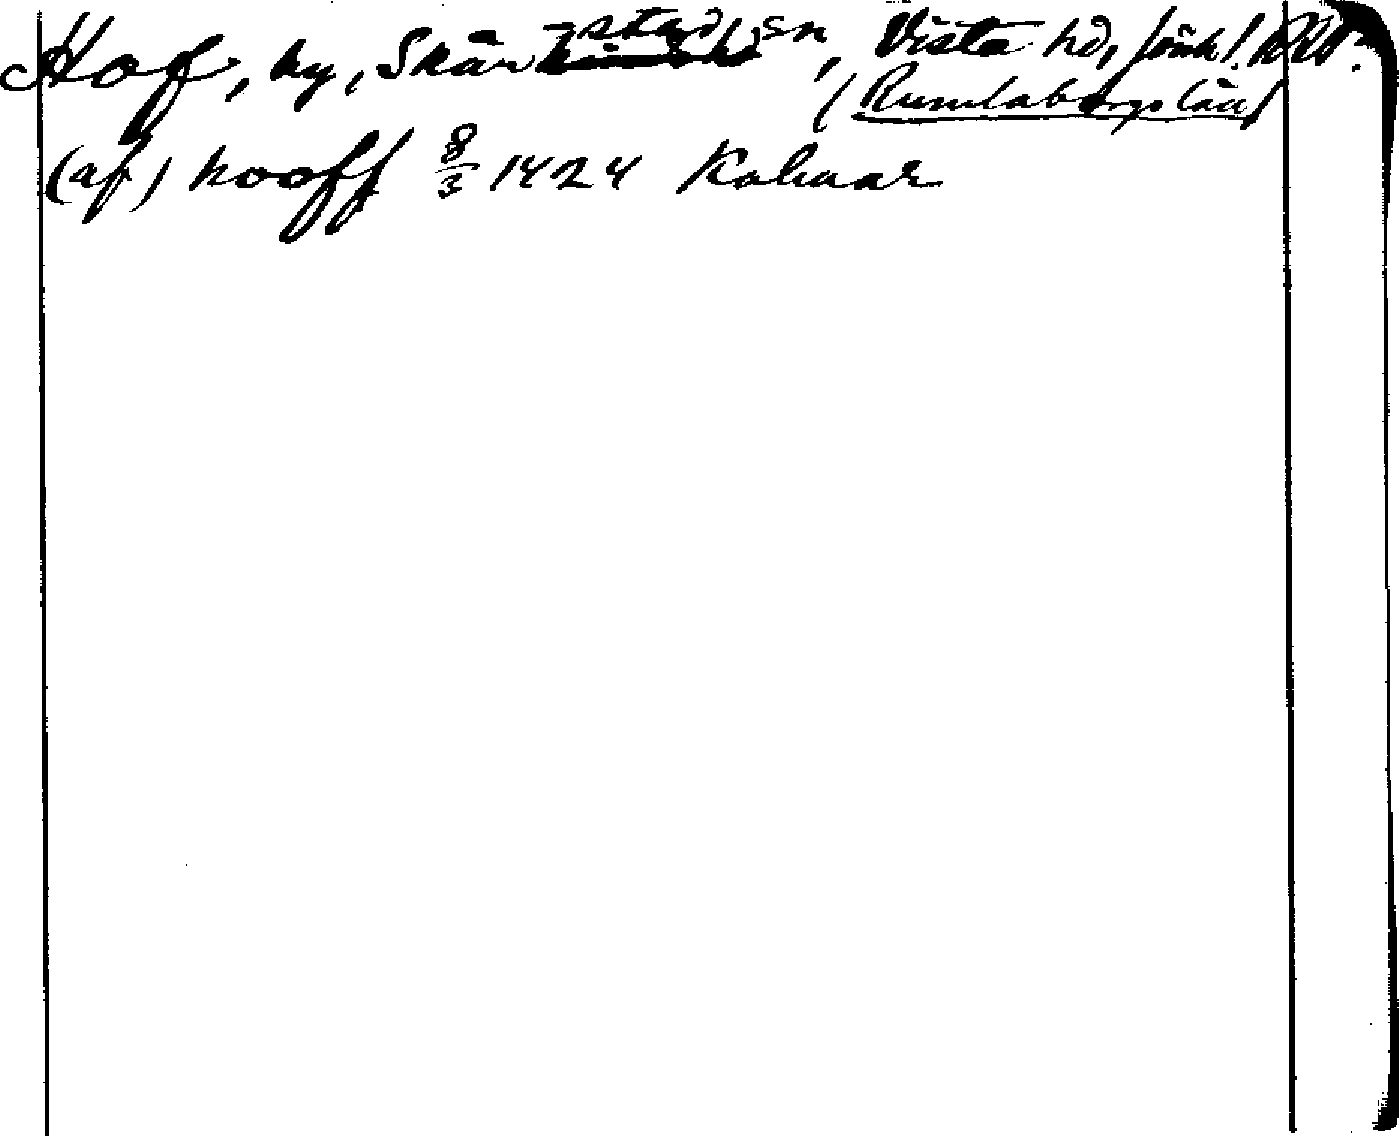 Hof, by, Skärstad sn, Vista hd, Jönk l.
(Rumlaborgs län)
(af) hooff 8/3 1424 Kalmar